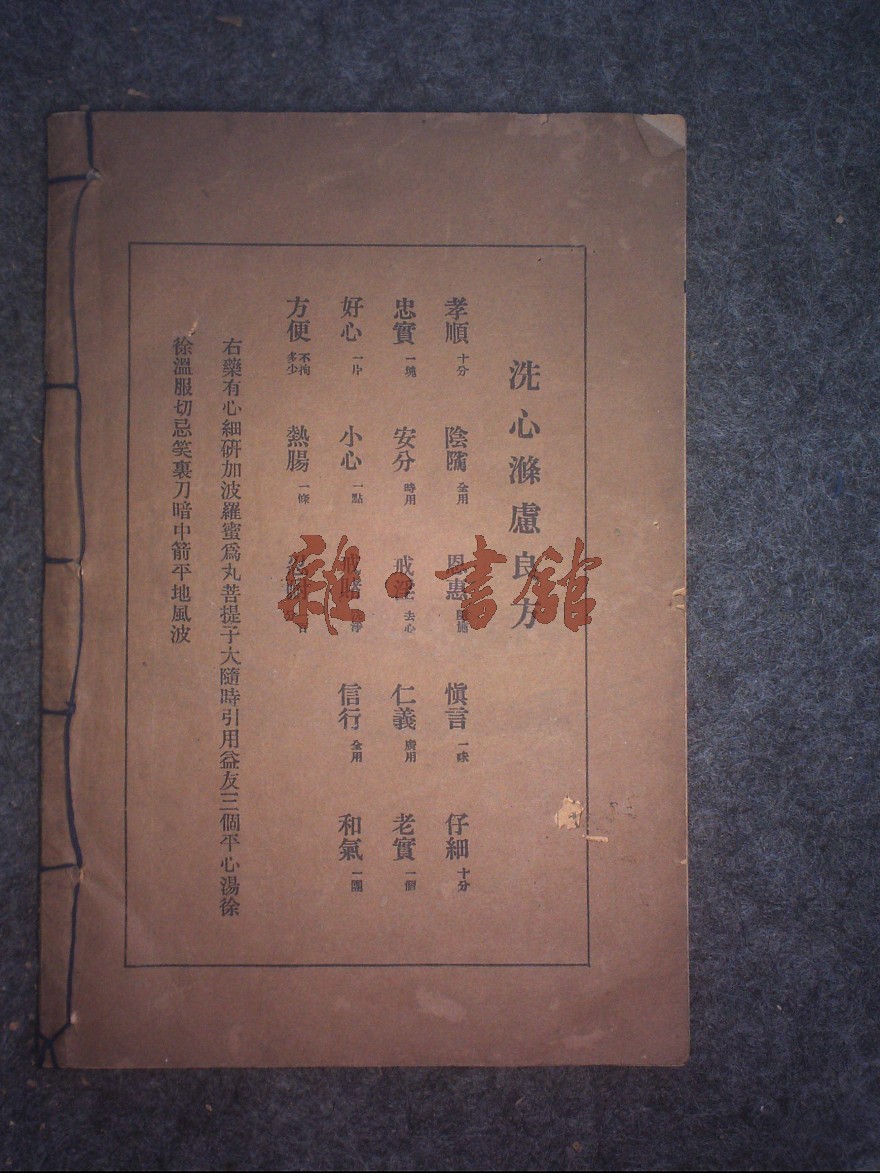 洗心滌慮良方
孝順 十分 陰隲 全用 恩惠 慎言 一味 仔細 十分
忠實 一塊 安分 時用 戒淫 去心 仁義 廣用 老實 一個
好心 一片 小心 一點 戒賭 信行 全用 和氣 一團
方便 不拘多少 熱腸 一條
右藥有心細研加波羅蜜爲丸菩提子大隨時引用益友三個平心湯徐
徐溫服切忌笑裏刀暗中箭平地風波
雜·書館